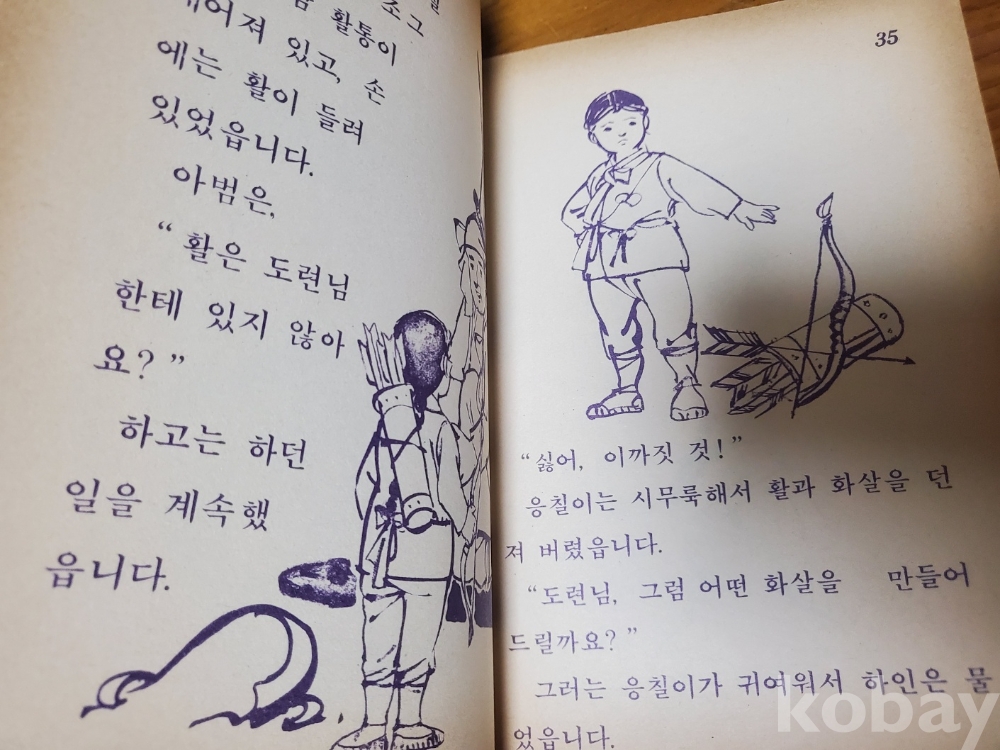 활통이
져 있고, 손
에는 활이 들려
있었읍니다.
아범은,
“활은 도련님
한테 있지 않아
요?”
하고는 하던
일을 계속했
읍니다.
35
“싫어, 이까짓 것!”
응칠이는 시무룩해서 활과 화살을 던
져 버렸읍니다.
“도련님, 그럼 어떤 화살을 만들어
드릴까요?”
그러는 응칠이가 귀여워서 하인은 물
었읍니다.
kobay